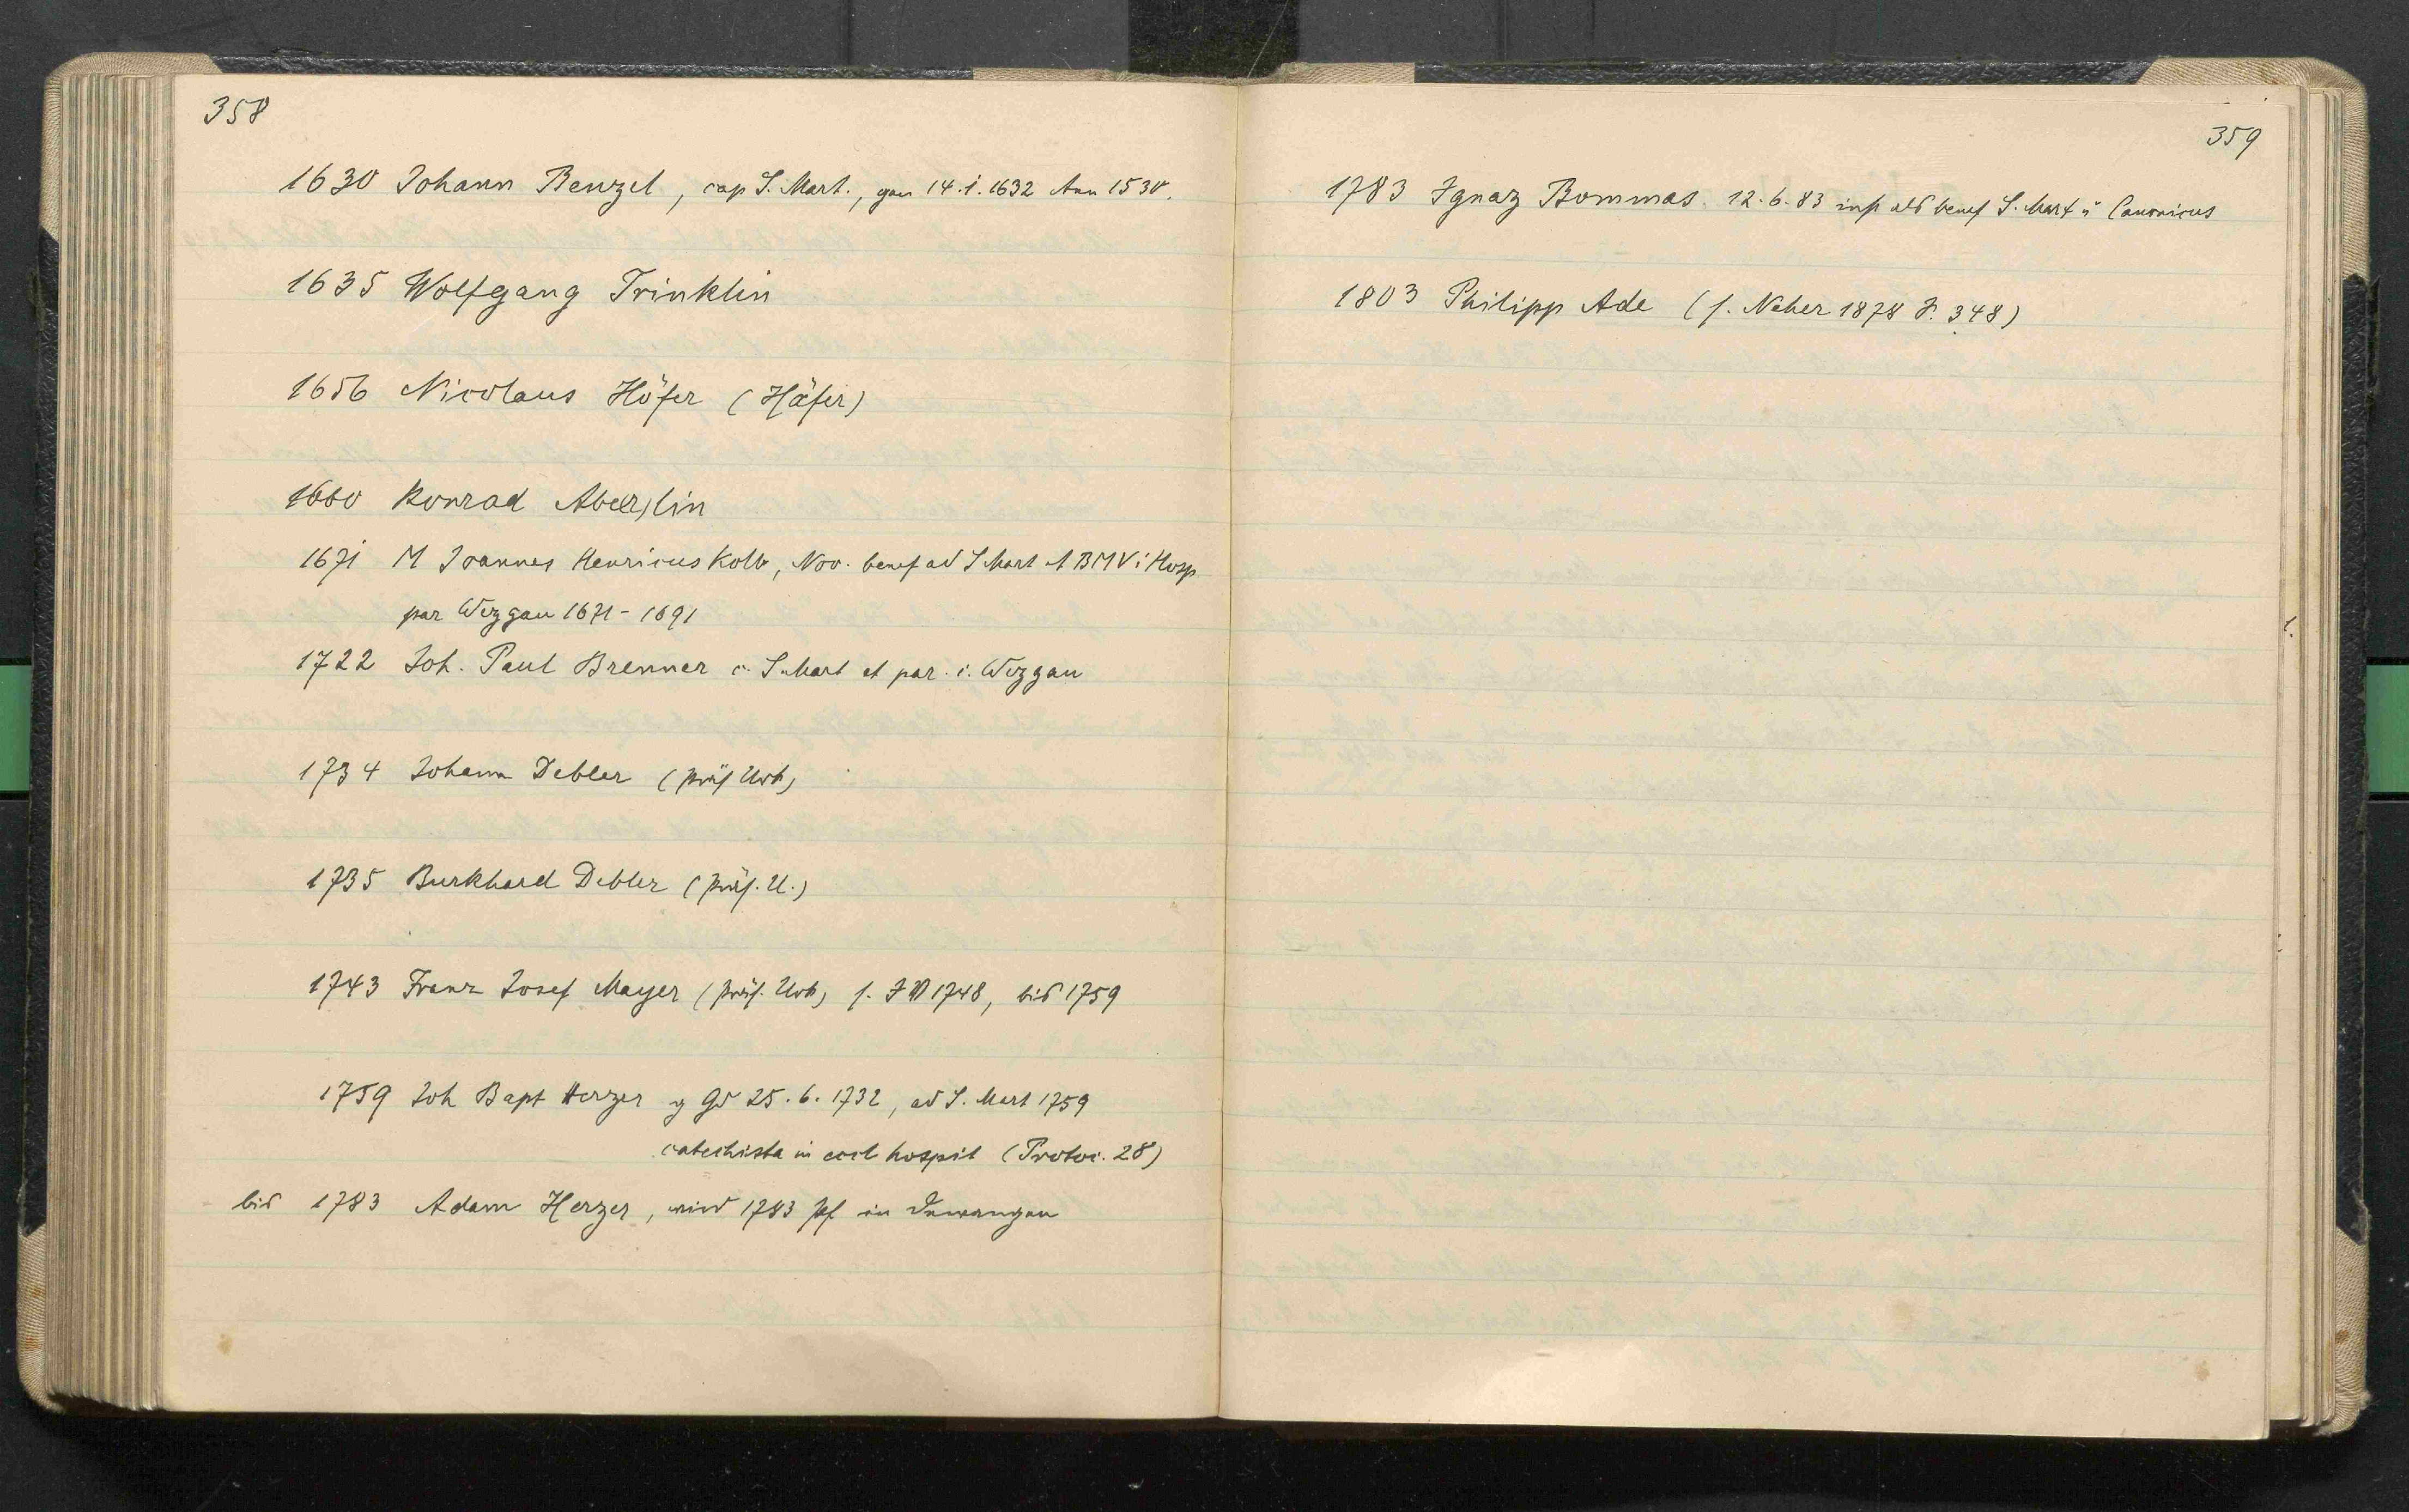 358
1630 Johann Benzel, cap S. Mart., gan 14.1.1632 Ann 1530.
1635 Wolfgang Trinklin
1656 Nicolaus Höfer (Häfer)
1660 Konrad Abe(r)lin
1671 M Joannes Henricus Kolb, Nov. benef ad S Mart et BMV i Hosp
par Wezgau 1671-1691
1722 Joh. Paul Brenner c. S. Mart et par. i. Wezgau
1734 Johann Debler (präs Urk)
1735 Burkhard Debler (präs. U.)
1743 Franz Josef Mayer (präs. Urk) s. 1748, bis 1759
1759 Joh Bapt Herzer g Gd 25.6.1732, ad S. Mart 1759
catechista in eccl hospit (Protoc. 28)
bis 1783 Adam Herzer, wird 1783 Pf in Dewangen
359
1783 Ignaz Bommas. 12.6.83 inst als benef S. Mart u Canonicus
1803 Philipp Ade (s. Neher 1878 S. 348)